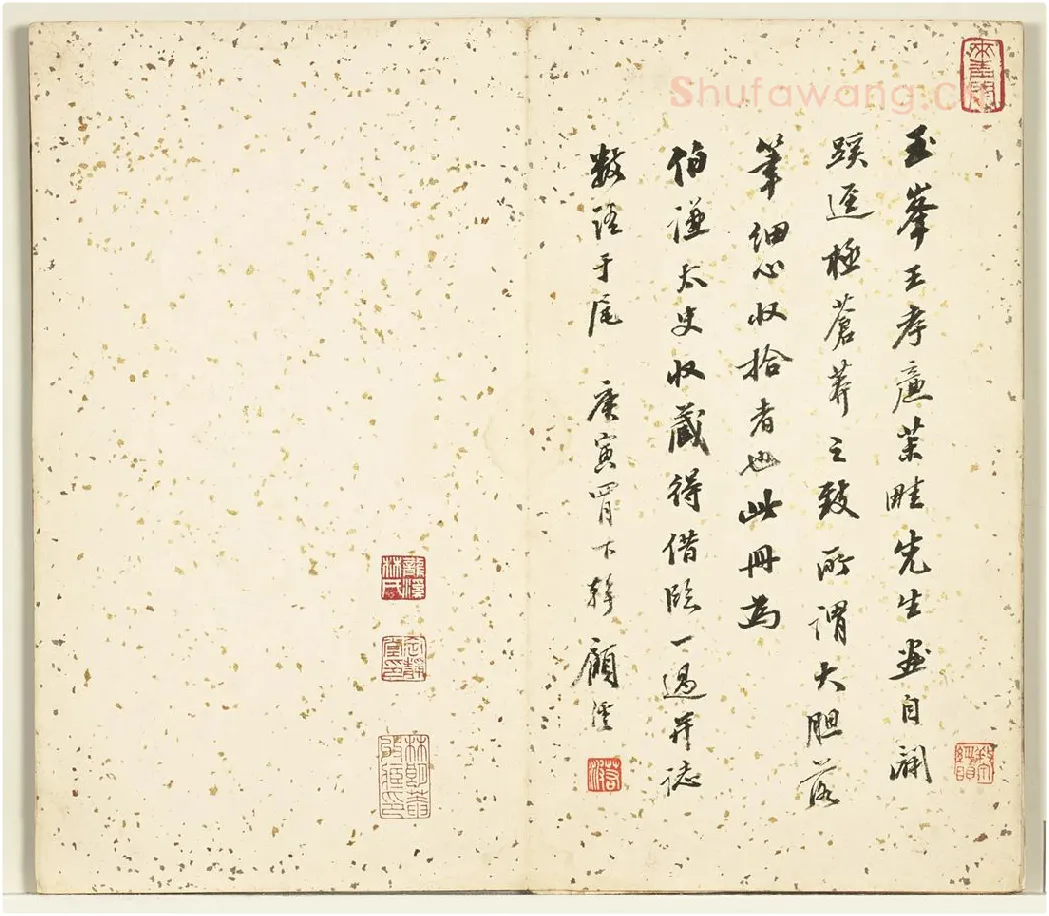 Shufawang.c
玉峯王孝廉茉畦先生画自闢
蹊逕極蒼莽之致所謂大胆落
筆細心收拾者也此冊為
伯謙太史收藏得借臨一過并誌
数語于尾 庚寅四月下澣 顧澐